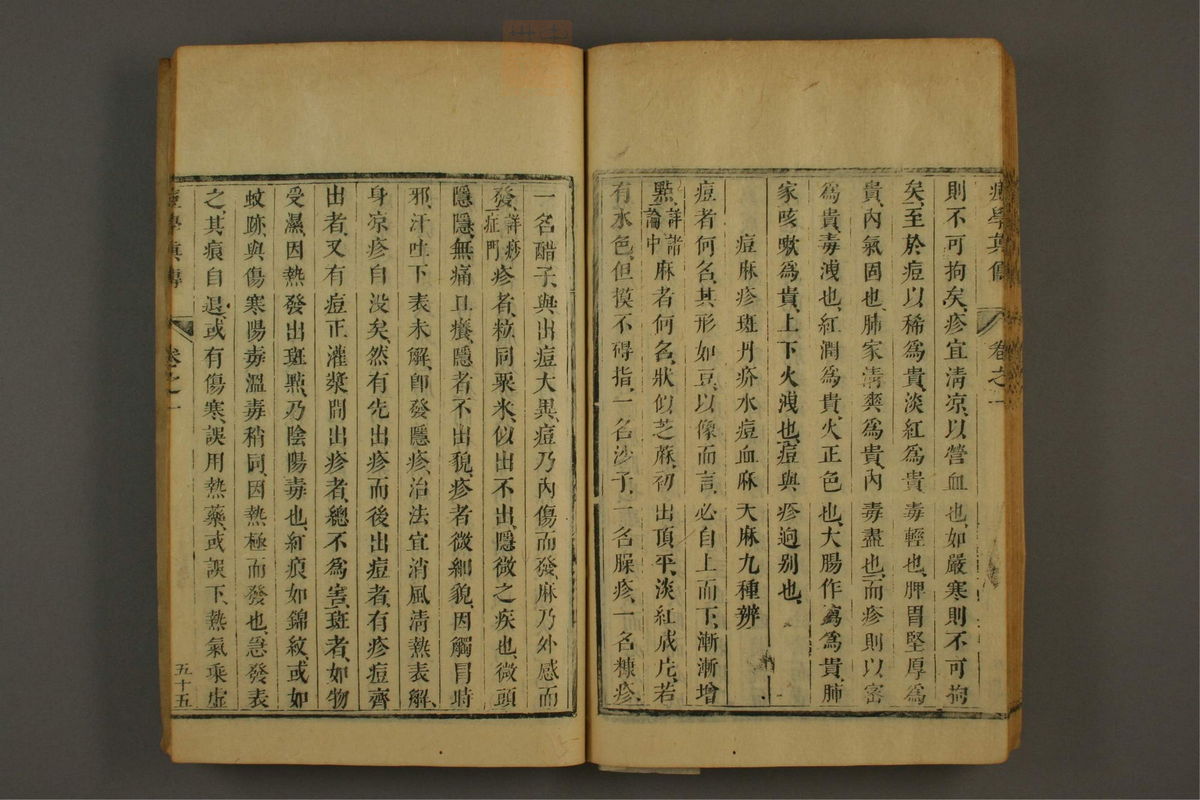 痘學真傳 卷之一
則不可拘矣疹宜清凉以營血也如嚴寒則不可拘
矣至於痘以稀爲貴淡紅爲貴毒輕也脾胃堅厚爲
貴內氣固也肺家清爽爲貴內毒盡也而疹則以密
爲貴毒洩也紅潤爲貴火正色也大腸作瀉爲貴肺
家咳嗽爲貴上下火洩也痘與疹逈别也
痘麻疹斑丹疥水痘血麻天麻九種辨
痘者何名其形如豆以像而言必自上而下漸漸增
點詳諸論中麻者何名狀似芝蔴初出頂平淡紅成片若
有水色但摸不碍指一名沙子一名臊疹一名糠疹
一名醋子與出痘大異痘乃內傷而發麻乃外感而
發詳痧症門疹者粒同粟米似出不出隱微之疾也微頭
隱隱無痛且癢隱者不出貌疹者微細貌因觸冒時
邪汗吐下表未解卽發隱疹治法宜消風清熱表解
身凉疹自没矣然有先出疹而後出痘者有疹痘齊
出者又有痘正灌漿間出疹者總不爲害斑者如物
受濕因熱發出斑點乃陰陽毒也紅痕如錦紋或如
蚊跡與傷寒陽毒溫毒稍同因熱極而發也急發表
之其痕自退或有傷寒誤用熱藥或誤下熱氣乘虛
痘學真傳 卷之一
五十五